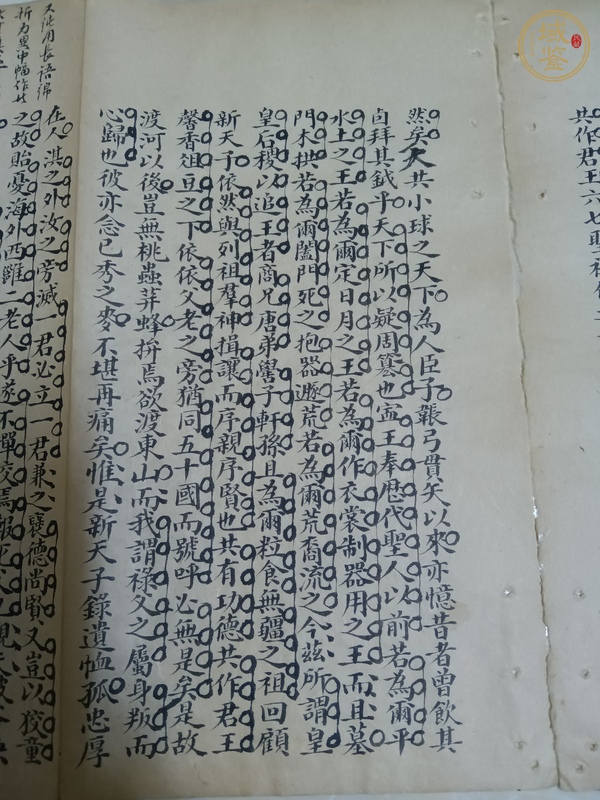 共作君王六七
然矣夫共小球之天下為人臣子張弓貫矢以來亦憶昔者曾飲其
卣拜其鉞乎天下所以疑周篡也寍王奉歷代聖人以前若為爾平
水土之王若為爾定日月之王若為爾作衣裳制器用之王而且墓
門木拱若為爾闔門死之抱器遯荒若為爾荒裔流之今茲所謂皇
皇后稷以追王者商兄唐弟嚳子軒孫且為爾粒食無疆之祖回顧
新天子依然與列祖羣神揖讓而序親序賢也共有功德共作君王
馨香俎豆之下依依父老之旁猶同五十國而號呼必無是矣是故
渡河以後豈無桃蟲莽蜂拚焉欲渡東山而我謂祿父之屬身叛而
心歸也彼亦念已秀之麥不堪再痛矣惟是新天子錄遺恤孤忠厚
在人淇之外汝之旁滅一君必立一君兼之襄德尚賢又豈以狡童
之故貽憂海外西雝二老人乎遂不憚
又純用長語綿
域鉴